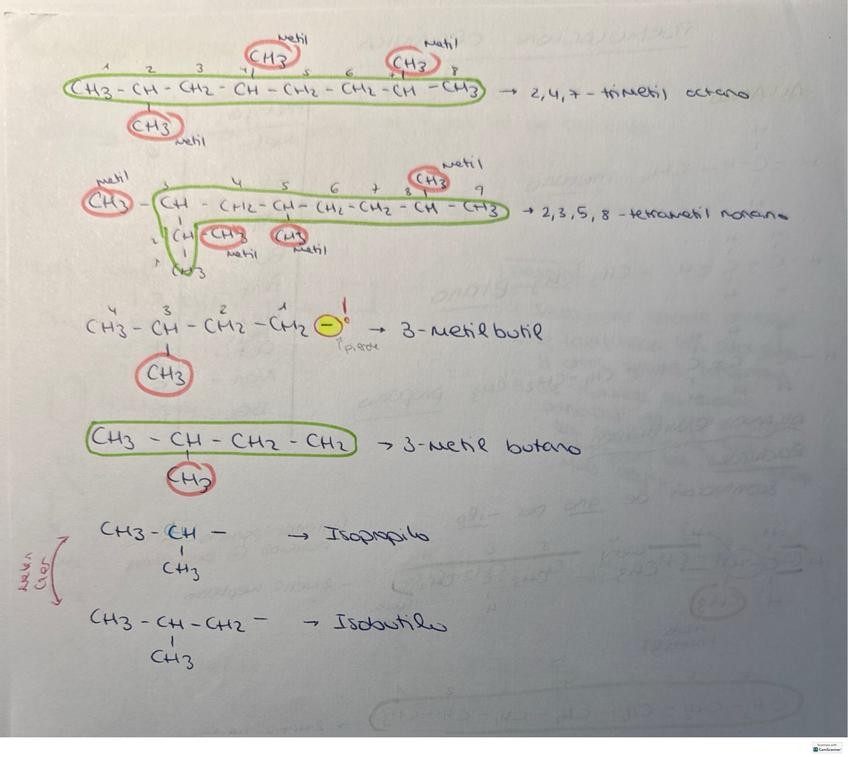 metil metil
CH3 CH3
1 2 3 4 5 6 7 8
CH3 - CH - CH2 - CH - CH2 - CH2 - CH - CH3 → 2,4,7 - trimetil octano
CH3
metil
metil
CH3
metil 3 4 5 6 7 8 9
CH3 - CH - CH2 - CH - CH2 - CH2 - CH - CH3 → 2,3,5,8 - tetrametil nonano
2 CH - CH3 CH3
metil metil
1 CH3
4 3 2 1 !
CH3 - CH - CH2 - CH2 - → 3-metilbutil
pierde
CH3
CH3 - CH - CH2 - CH2 → 3-metil butano
CH3
CH3 - CH - → Isopropilo
CH3
CH3 - CH - CH2 - → Isobutilo
CH3
Scanned with
CamScanner